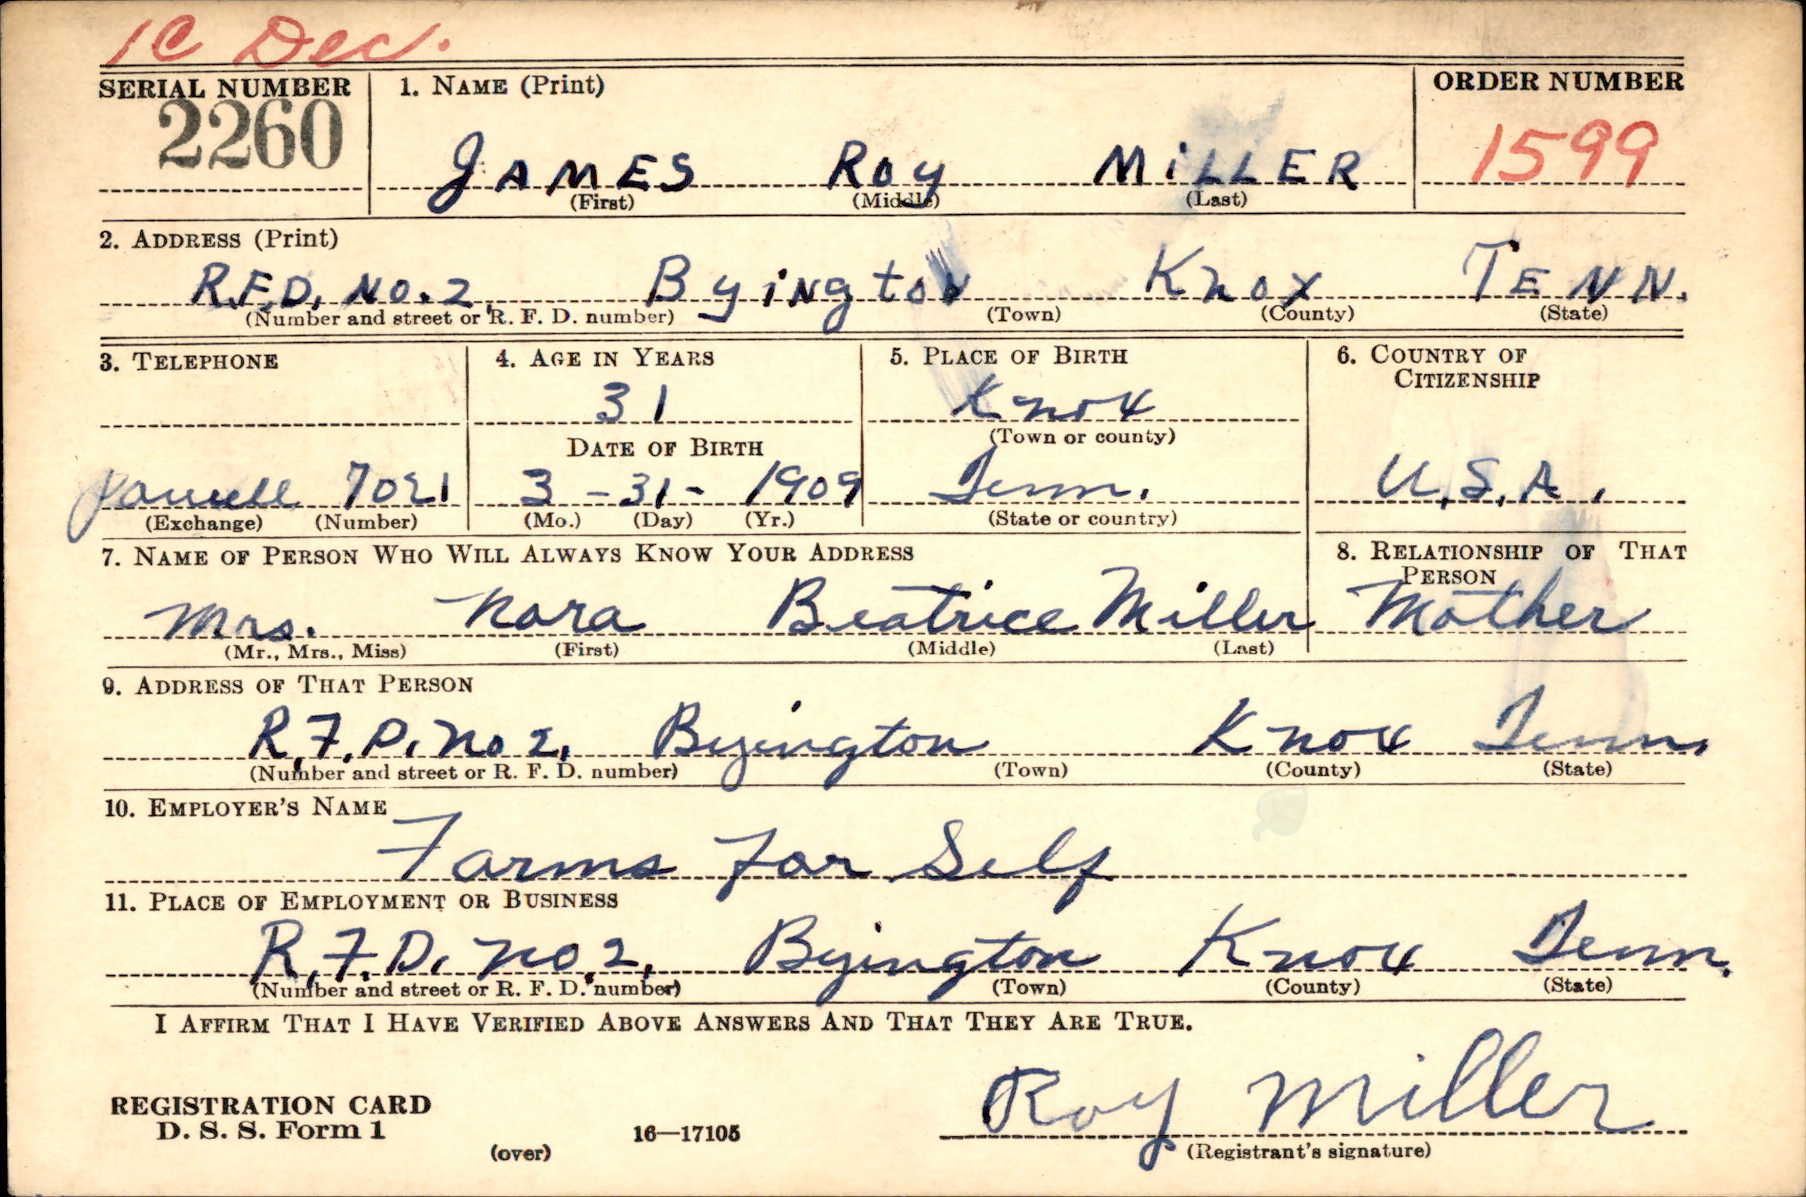 1C Dec.
SERIAL NUMBER 1. NAME (Print) ORDER NUMBER
2260 JAMES ROY MILLER 1599
(First) (Middle) (Last)
2. ADDRESS (Print)
R.F.D. NO. 2, Byington Knox TENN.
(Number and street or R. F. D. number) (Town) (County) (State)
3. TELEPHONE 4. AGE IN YEARS 5. PLACE OF BIRTH 6. COUNTRY OF CITIZENSHIP
31 Knox
DATE OF BIRTH (Town or county)
Powell 7021 3 - 31 - 1909 Tenn. U.S.A.
(Exchange) (Number) (Mo.) (Day) (Yr.) (State or country)
7. NAME OF PERSON WHO WILL ALWAYS KNOW YOUR ADDRESS 8. RELATIONSHIP OF THAT PERSON
Mrs. Nora Beatrice Miller Mother
(Mr., Mrs., Miss) (First) (Middle) (Last)
9. ADDRESS OF THAT PERSON
R.F.D. No 2, Byington Knox Tenn.
(Number and street or R. F. D. number) (Town) (County) (State)
10. EMPLOYER'S NAME
Farms For Self
11. PLACE OF EMPLOYMENT OR BUSINESS
R.F.D. No. 2, Byington Knox Tenn.
(Number and street or R. F. D. number) (Town) (County) (State)
I AFFIRM THAT I HAVE VERIFIED ABOVE ANSWERS AND THAT THEY ARE TRUE.
Roy Miller
REGISTRATION CARD
D. S. S. Form 1 16—17105
(over) (Registrant's signature)